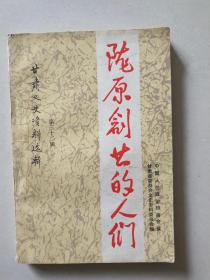 陇原创业的人们
甘肃文史资料选辑
第三十二辑
中国人民政治协商会议
甘肃省委员会文史资料委员会编